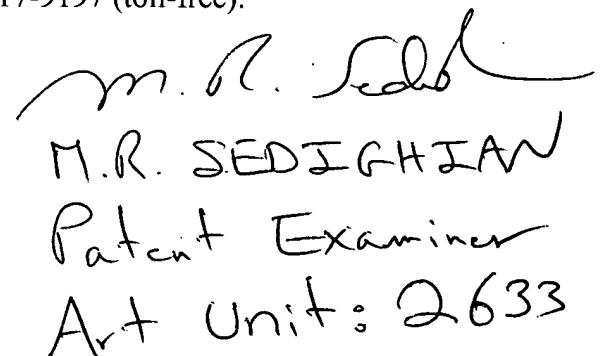 (toll-free).
M. R. Sedi
M.R. SEDIGHIAN
Patent Examiner
Art Unit: 2633